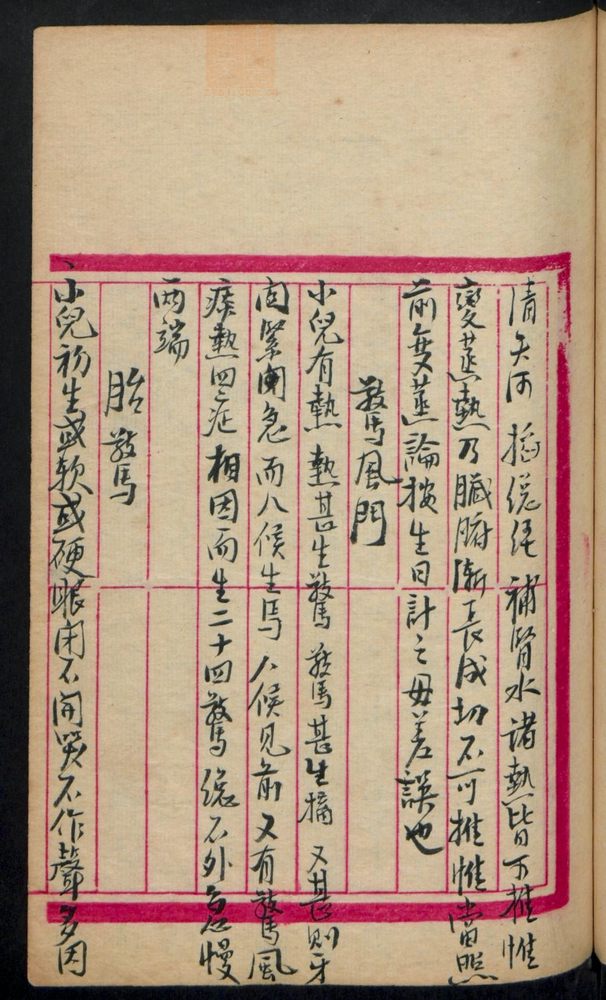 清天河 揺總經 補腎水 諸熱皆可推惟
變蒸熱乃臟腑漸長成切不可推惟當照
前變蒸論按生日計之毋差誤也
驚風門
小兒有熱熱甚生驚驚甚生搐又甚則牙
関緊閉急而八候生焉八候見前又有驚風
痰熱四症相因而生二十四驚總不外急慢
兩端
胎驚
小兒初生或軟或硬眼閉不開哭不作聲多因